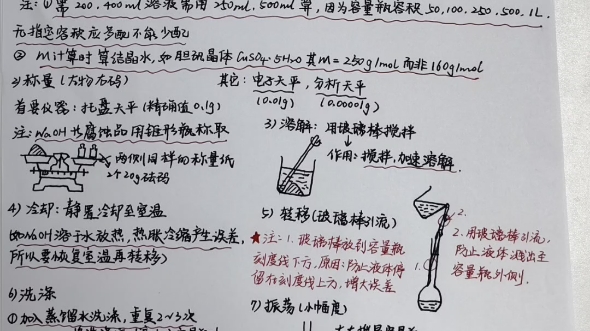 注:①需200、400ml溶液需用250ml、500ml算,因为容量瓶容积50、100、250、500、1L.
无指定容积应多配不能少配
② M计算时算结晶水,如胆矾晶体CuSO₄·5H₂O其M=250g/mol而非160g/mol
2)称量(左物右码)
其它:电子天平,分析天平
(0.01g) (0.0001g)
首要仪器:托盘天平(精确值0.1g)
注:NaOH
腐蚀品用锥形瓶称取
两侧同样的称量纸
2个20g砝码
3)溶解:用玻璃棒搅拌
作用:搅拌,加速溶解.
4)冷却:静置冷却至室温
(如NaOH溶于水放热,热胀冷缩产生误差,
所以要恢复室温再转移)
5)转移(玻璃棒引流)
★注:1.玻璃棒放到容量瓶
刻度线下方,原因:防止液体停
留在刻度线上方,增大误差
1.
2.
2.用玻璃棒引流,
防止液体溅出至
容量瓶外侧.
6)洗涤
①加入蒸馏水洗涤,重复2~3次
7)振荡(小幅度)